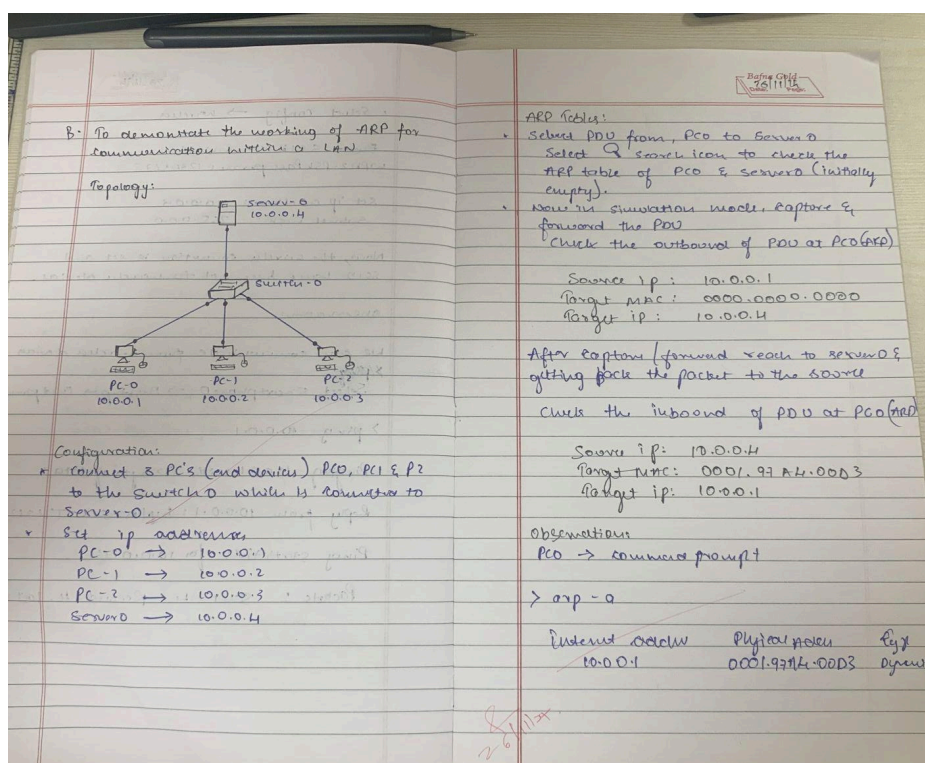 B. To demonstrate the working of ARP for
communication within a LAN.
Topology:
Server-0
10.0.0.4
Switch-0
PC-0
10.0.0.1
PC-1
10.0.0.2
PC-2
10.0.0.3
Configuration:
* Connect 3 PC's (end devices) PC0, PC1 & P2
to the Switch0 which is
Server-0.
* Set ip address
PC-0 → 10.0.0.1
PC-1 → 10.0.0.2
PC-2 → 10.0.0.3
Server0 → 10.0.0.4
Bafna Gold
Date: Page:
ARP Tables:
• Select PDU from, PC0 to Server0
Select search icon to check the
ARP table of PC0 & Server0 (initially
empty).
• Now in simulation mode, capture &
forward the PDU
Check the outbound of PDU at PC0 (ARP)
Source ip: 10.0.0.1
Target MAC: 0000.0000.0000
Target ip: 10.0.0.4
After capture / forward reach to server0 &
getting back the packet to the source
Check the inbound of PDU at PC0 (ARP)
Source ip: 10.0.0.4
Target MAC: 0001.97A4.00D3
Target ip: 10.0.0.1
Observation:
PC0 → command prompt
> arp -a
Internet Physical
10.0.0.1 0001.97A4.00D3